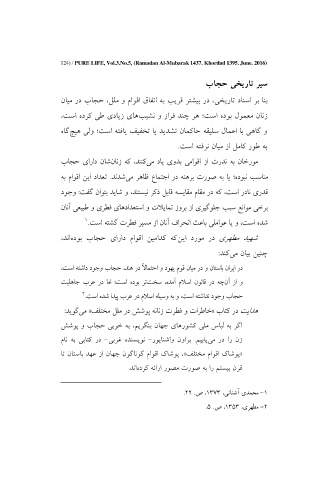 124) / PURE LIFE, Vol.3.No.5, (Ramadan Al-Mubarak 1437. Khordad 1395. June. 2016)
سیر تاریخی حجاب
بنا بر اسناد تاریخی، در بیشتر قریب به اتفاق اقوام و ملل، حجاب در میان
زنان معمول بوده است؛ هر چند فراز و نشیب‌های زیادی طی کرده است،
و گاهی با اعمال سلیقه حاکمان تشدید یا تخفیف یافته است؛ ولی هیچ‌گاه
به طور کامل از میان نرفته است.
مورخان به ندرت از اقوامی بدوی یاد می‌کنند، که زنان‌شان دارای حجاب
مناسب نبوده؛ یا به صورت برهنه در اجتماع ظاهر می‌شدند. تعداد این اقوام به
قدری نادر است، که در مقام مقایسه قابل ذکر نیستند، و شاید بتوان گفت: وجود
برخی موانع سبب جلوگیری از بروز تمایلات و استعدادهای فطری و طبیعی آنان
شده است، و یا عواملی باعث انحراف آنان از مسیر فطرت گشته است.۱
شهید مطهری در مورد این‌که کدامین اقوام دارای حجاب بوده‌اند،
چنین بیان می‌کند:
در ایران باستان و در میان قوم یهود و احتمالاً در هند، حجاب وجود داشته است،
و از آن‌چه در قانون اسلام آمده، سخت‌تر بوده است؛ اما در عرب جاهلیت
حجاب وجود نداشته است، و به وسیله اسلام در عرب پیدا شده است.۲
هدایت در کتاب «خاطرات و فطرت زنانه پوشش در ملل مختلف» می‌گوید:
اگر به لباس ملی کشورهای جهان بنگریم، به خوبی حجاب و پوشش
زن را در می‌یابیم. براون واشنایور- نویسنده غربی- در کتابی به نام
«پوشاک اقوام مختلف»، پوشاک اقوام گوناگون جهان از عهد باستان تا
قرن بیستم را به صورت مصور ارائه کرده‌اند
۱- محمدی آشنانی، ۱۳۷۳، ص. ۲۲.
۲- مطهری، ۱۳۵۳، ص. ۵.